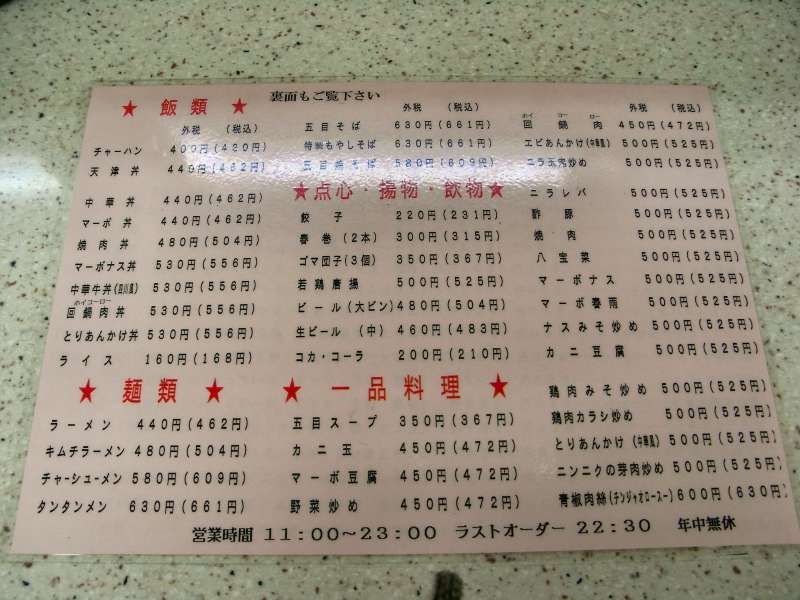 裏面もご覧下さい
★ 飯類 ★
外税 (税込)
チャーハン 400円(420円)
天津丼 440円(462円)
中華丼 440円(462円)
マーボ丼 440円(462円)
焼肉丼 480円(504円)
マーボナス丼 530円(556円)
中華牛丼(四川風) 530円(556円)
ホイコーロー
回鍋肉丼 530円(556円)
とりあんかけ丼 530円(556円)
ライス 160円(168円)
★ 麺類 ★
ラーメン 440円(462円)
キムチラーメン 480円(504円)
チャーシューメン 580円(609円)
タンタンメン 630円(661円)
外税 (税込)
五目そば 630円(661円)
特製もやしそば 630円(661円)
五目焼そば 580円(609円)
★点心・揚物・飲物★
餃子 220円(231円)
春巻(2本) 300円(315円)
ゴマ団子(3個) 350円(367円)
若鶏唐揚 500円(525円)
ビール(大ビン) 480円(504円)
生ビール (中) 460円(483円)
コカ・コーラ 200円(210円)
★ 一品料理 ★
五目スープ 350円(367円)
カニ玉 450円(472円)
マーボ豆腐 450円(472円)
野菜炒め 450円(472円)
外税 (税込)
ホイ コー ロー
回鍋肉 450円(472円)
エビあんかけ(中華風) 500円(525円)
ニラ玉肉炒め 500円(525円)
ニラレバ 500円(525円)
酢豚 500円(525円)
焼肉 500円(525円)
八宝菜 500円(525円)
マーボナス 500円(525円)
マーボ春雨 500円(525円)
ナスみそ炒め 500円(525円)
カニ豆腐 500円(525円)
鶏肉みそ炒め 500円(525円)
鶏肉カラシ炒め 500円(525円)
とりあんかけ(中華風) 500円(525円)
ニンニクの芽肉炒め 500円(525円)
青椒肉絲(チンジャオロースー) 600円(630円)
営業時間 11:00～23:00 ラストオーダー 22:30 年中無休